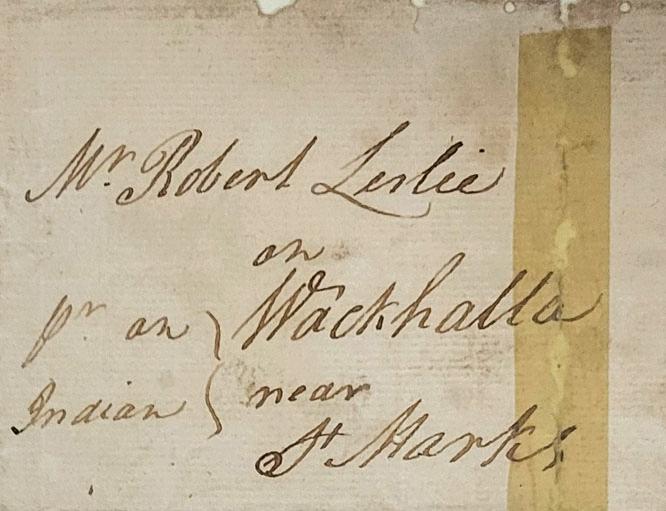 Mr. Robert Leslie
on
Wackhalla
pr. an
Indian
near
St Marks